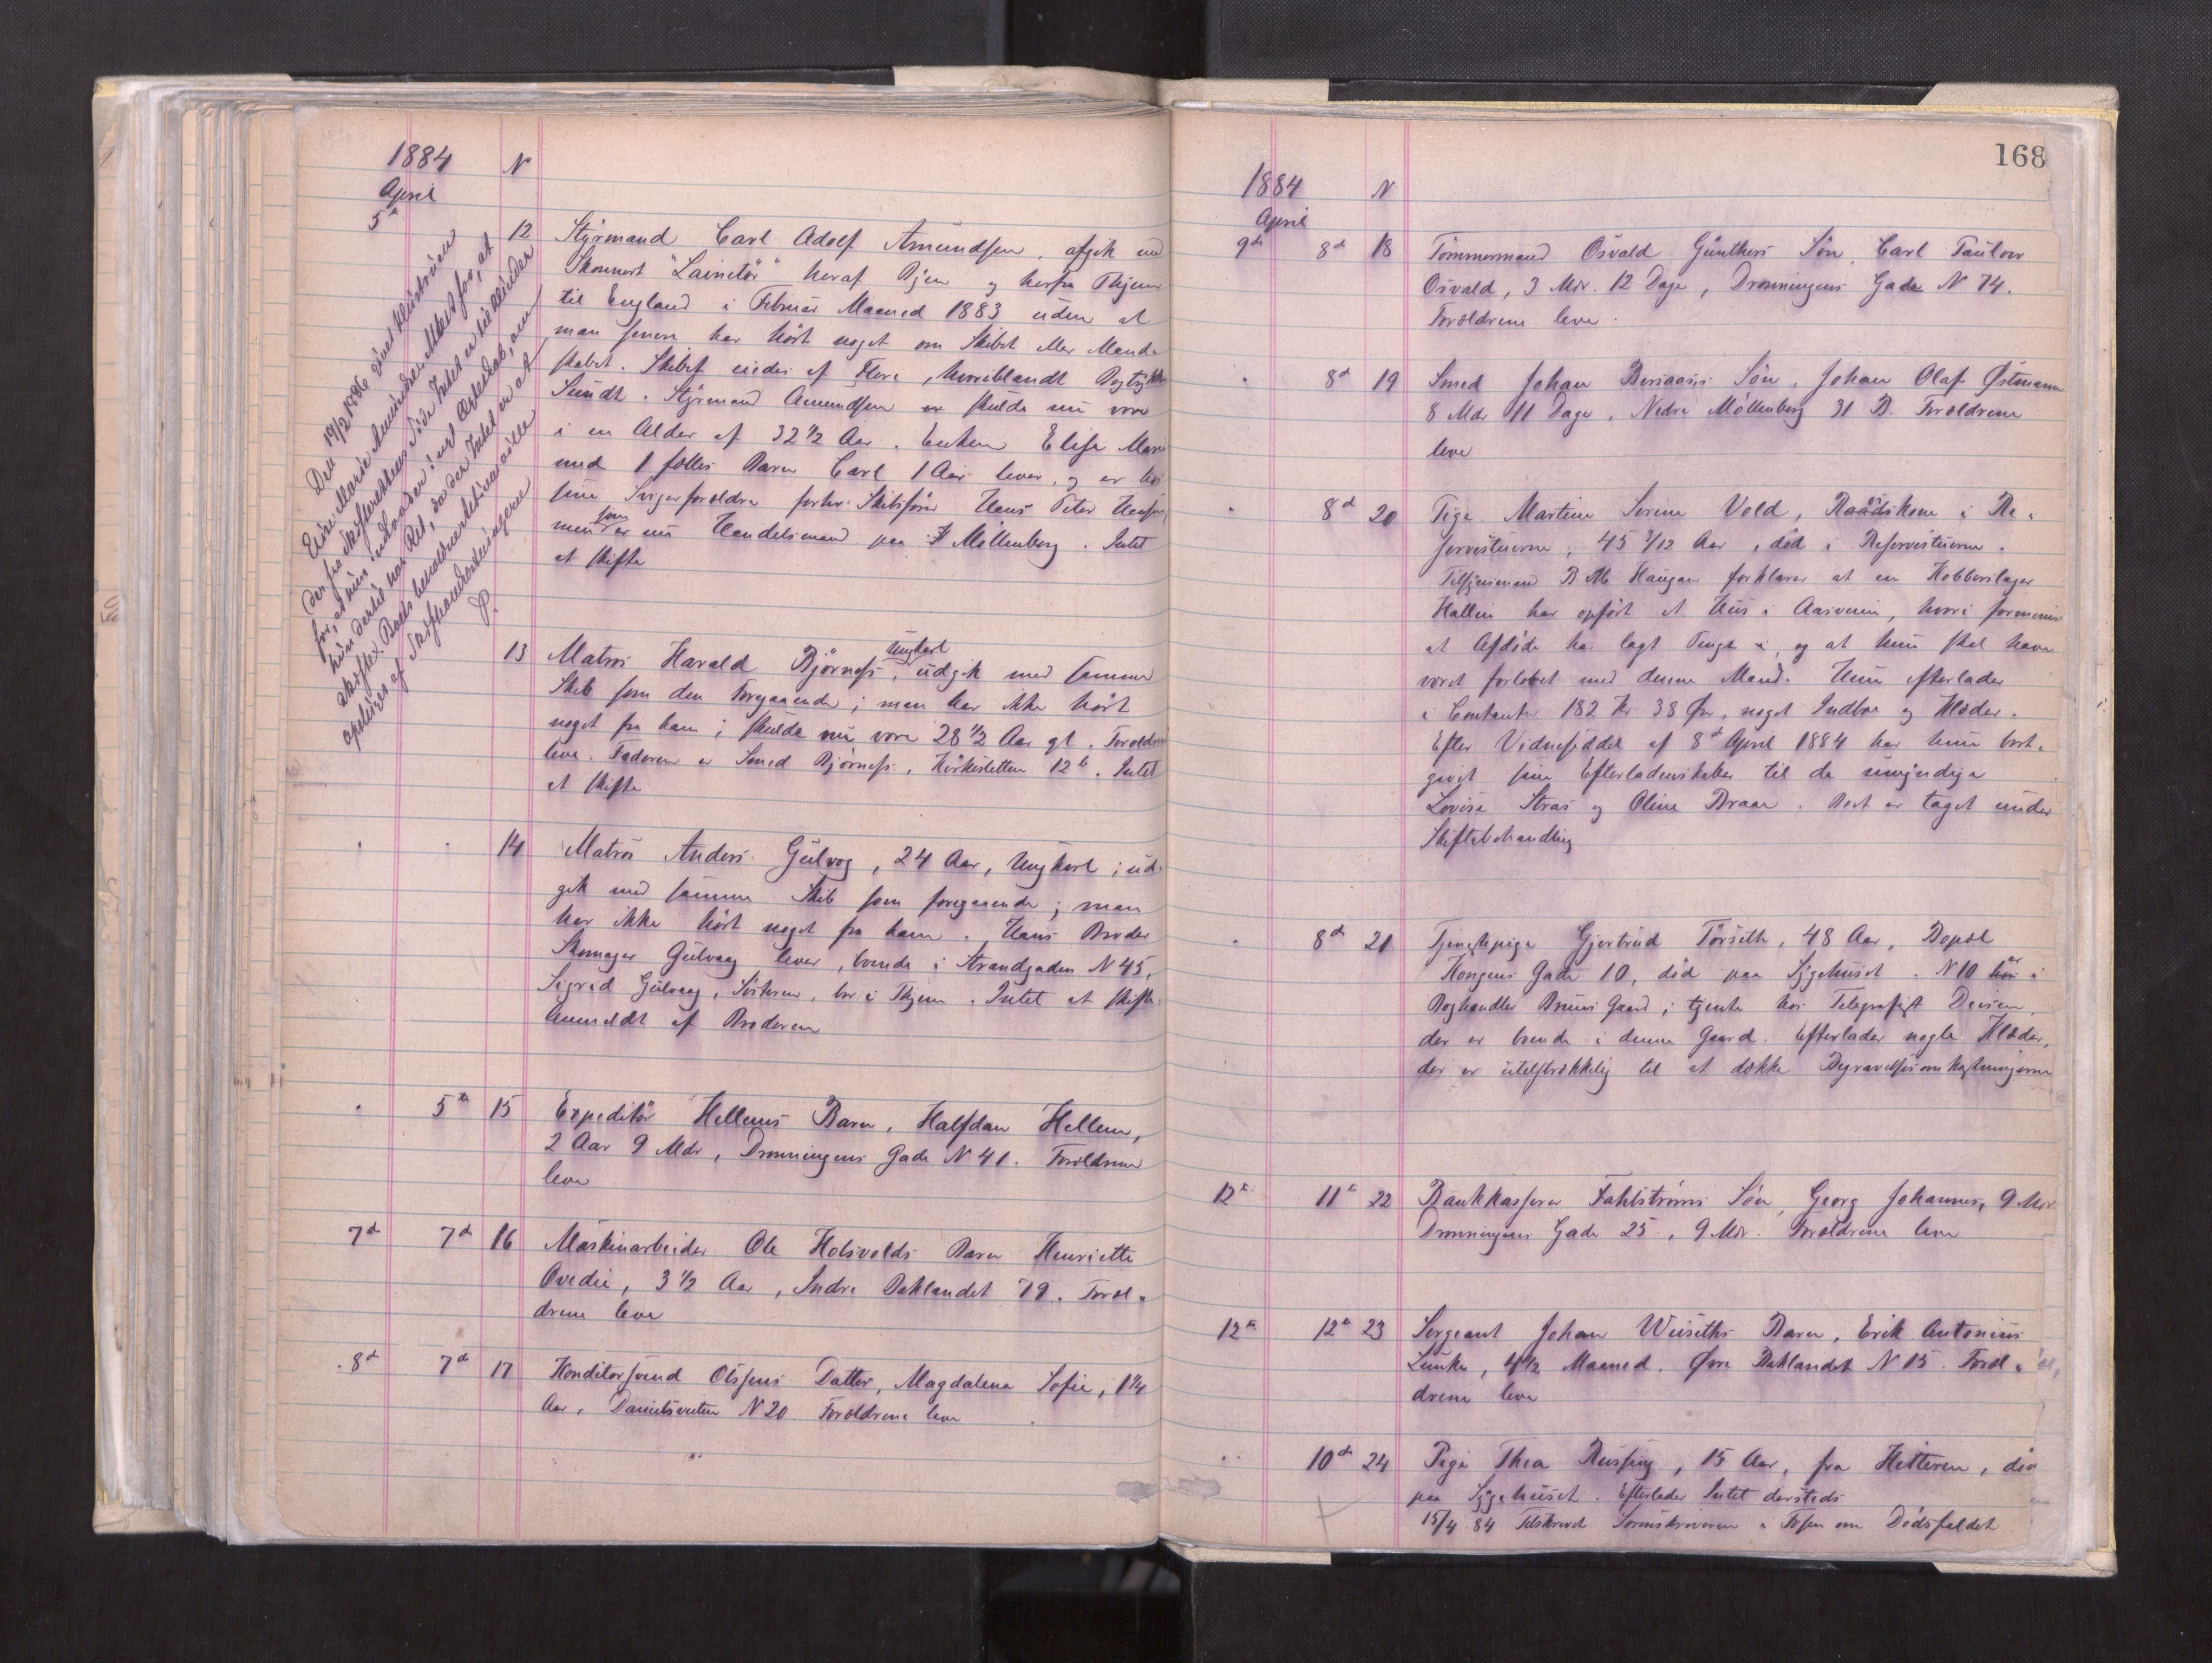 1884
N
April
5te
Den 19/2 1886 givet
Enke Marie Amundsen Attest for, at
der fra Skifterettens Side Intet er til Hinder
for, at hun indtræder i nyt Ægteskab, om
hun dertil har Ret, da der Intet er at
skifte.
12 Styrmand Carl Adolf Amundsen, afgik med
Skonnert heraf Byen og herfra Thjem
til England i Februar Maaned 1883 uden at
man senere har hørt noget om Skibet eller Mand-
skabet. Skibet eiedes af Flere, hvoriblandt
Sundt. Styrmand Amundsen skulde nu være
i en Alder af 32 1/2 Aar. Enken Elise Marie
med 1 fælles Barn Carl 1 Aar lever, og er hos
sine Svigerforældre forhv. Skibsfører Hans Peter Hansen,
men som er nu Handelsmand paa Møllenberg. Intet
at skifte
13 Matros Harald Bjørness, Ungkarl udgik med samme
Skib som den Foregaaende; man har ikke hørt
noget fra ham; skulde nu være 28 1/2 Aar gl. Forældrene
leve. Faderen er Smed Bjørness, Kirkesletten 12b. Intet
at skifte
14 Matros Anders Gulvog, 24 Aar, Ungkarl; ud-
gik med samme Skib som foregaaende; man
har ikke hørt noget fra ham. Hans Broder
Skomager Gulvaag lever, boende i Strandgaden N 45,
Sigrid Gulvaag, Søsteren, bor i Thjem. Intet at skifte.
Anmeldt af Broderen
5te 15 Expeditør Hellems Barn, Halfdan Hellem,
2 Aar 9 Mdr, Dronningens Gade N 41. Forældrene
leve
7de 7de 16 Maskinarbeider Ole Holsvolds Barn Henriette
Ovedie, 3 1/2 Aar, Indre Baklandet 79. Foræl-
drene leve
8de 7de 17 Konditorsvend Olssens Datter, Magdalena Sofie, 1 1/4
Aar, Danielsveiten N 20. Forældrene leve
168
1884
N
April
9de 8de 18 Tømmermand Osvald Günthers Søn, Carl Paulow
Osvald, 3 Mdr. 12 Dage, Dronningens Gade N 74.
Forældrene leve.
8de 19 Smed Johan Søn, Johan Olaf Østmann
8 Mdr 11 Dage, Nedre Møllenberg 31 B. Forældrene
leve
8de 20 Pige Martine Serine Vold, i Re-
servestuerne, 45 Aar, død i Reservestuerne.
Tilsynsmand B M Haugan forklarer at en Kobberslager
Hallein har opført et Hus i Aasveien, hvori formenes
at Afdøde har lagt Penge i, og at hun skal have
været forlovet med denne Mand. Hun efterlader
i Contanter 182 Kr 38 Øre, noget Indbo og Klæder.
Efter Vidneseddel af 8de April 1884 har hun bort-
givet sine Efterladenskaber til de umyndige
Lovise Straas og Oline Braae. Boet er taget under
Skiftebehandling
8de 21 Tjenestepige Gjertrud Tørseth, 48 Aar, Bopæl
Kongens Gade 10, død paa Sygehuset. N 10 er i
Boghandler Bruns Gaard; tjente hos Telegrafist
der er boende i denne Gaard. Efterlader nogle Klæder,
der er utilstrækkelig til at dække Begravelsesomkostningerne
12te 11te 22 Bankkasserer Fahlstrøms Søn, Georg Johannes, 9 Mdr
Dronningens Gade 25, 9 Mdr. Forældrene leve
12te 12te 23 Sergeant Johan Wuseths Barn, Erik Antonius
4 1/2 Maaned, Øvre Baklandet N 15. Foræl-
drene leve
10de 24 Pige Thea Russing, 15 Aar, fra Hitteren, død
paa Sygehuset. Efterlader Intet dersteds
15/4 84 Tilskrevet Sorenskriveren i Fosen om Dødsfaldet